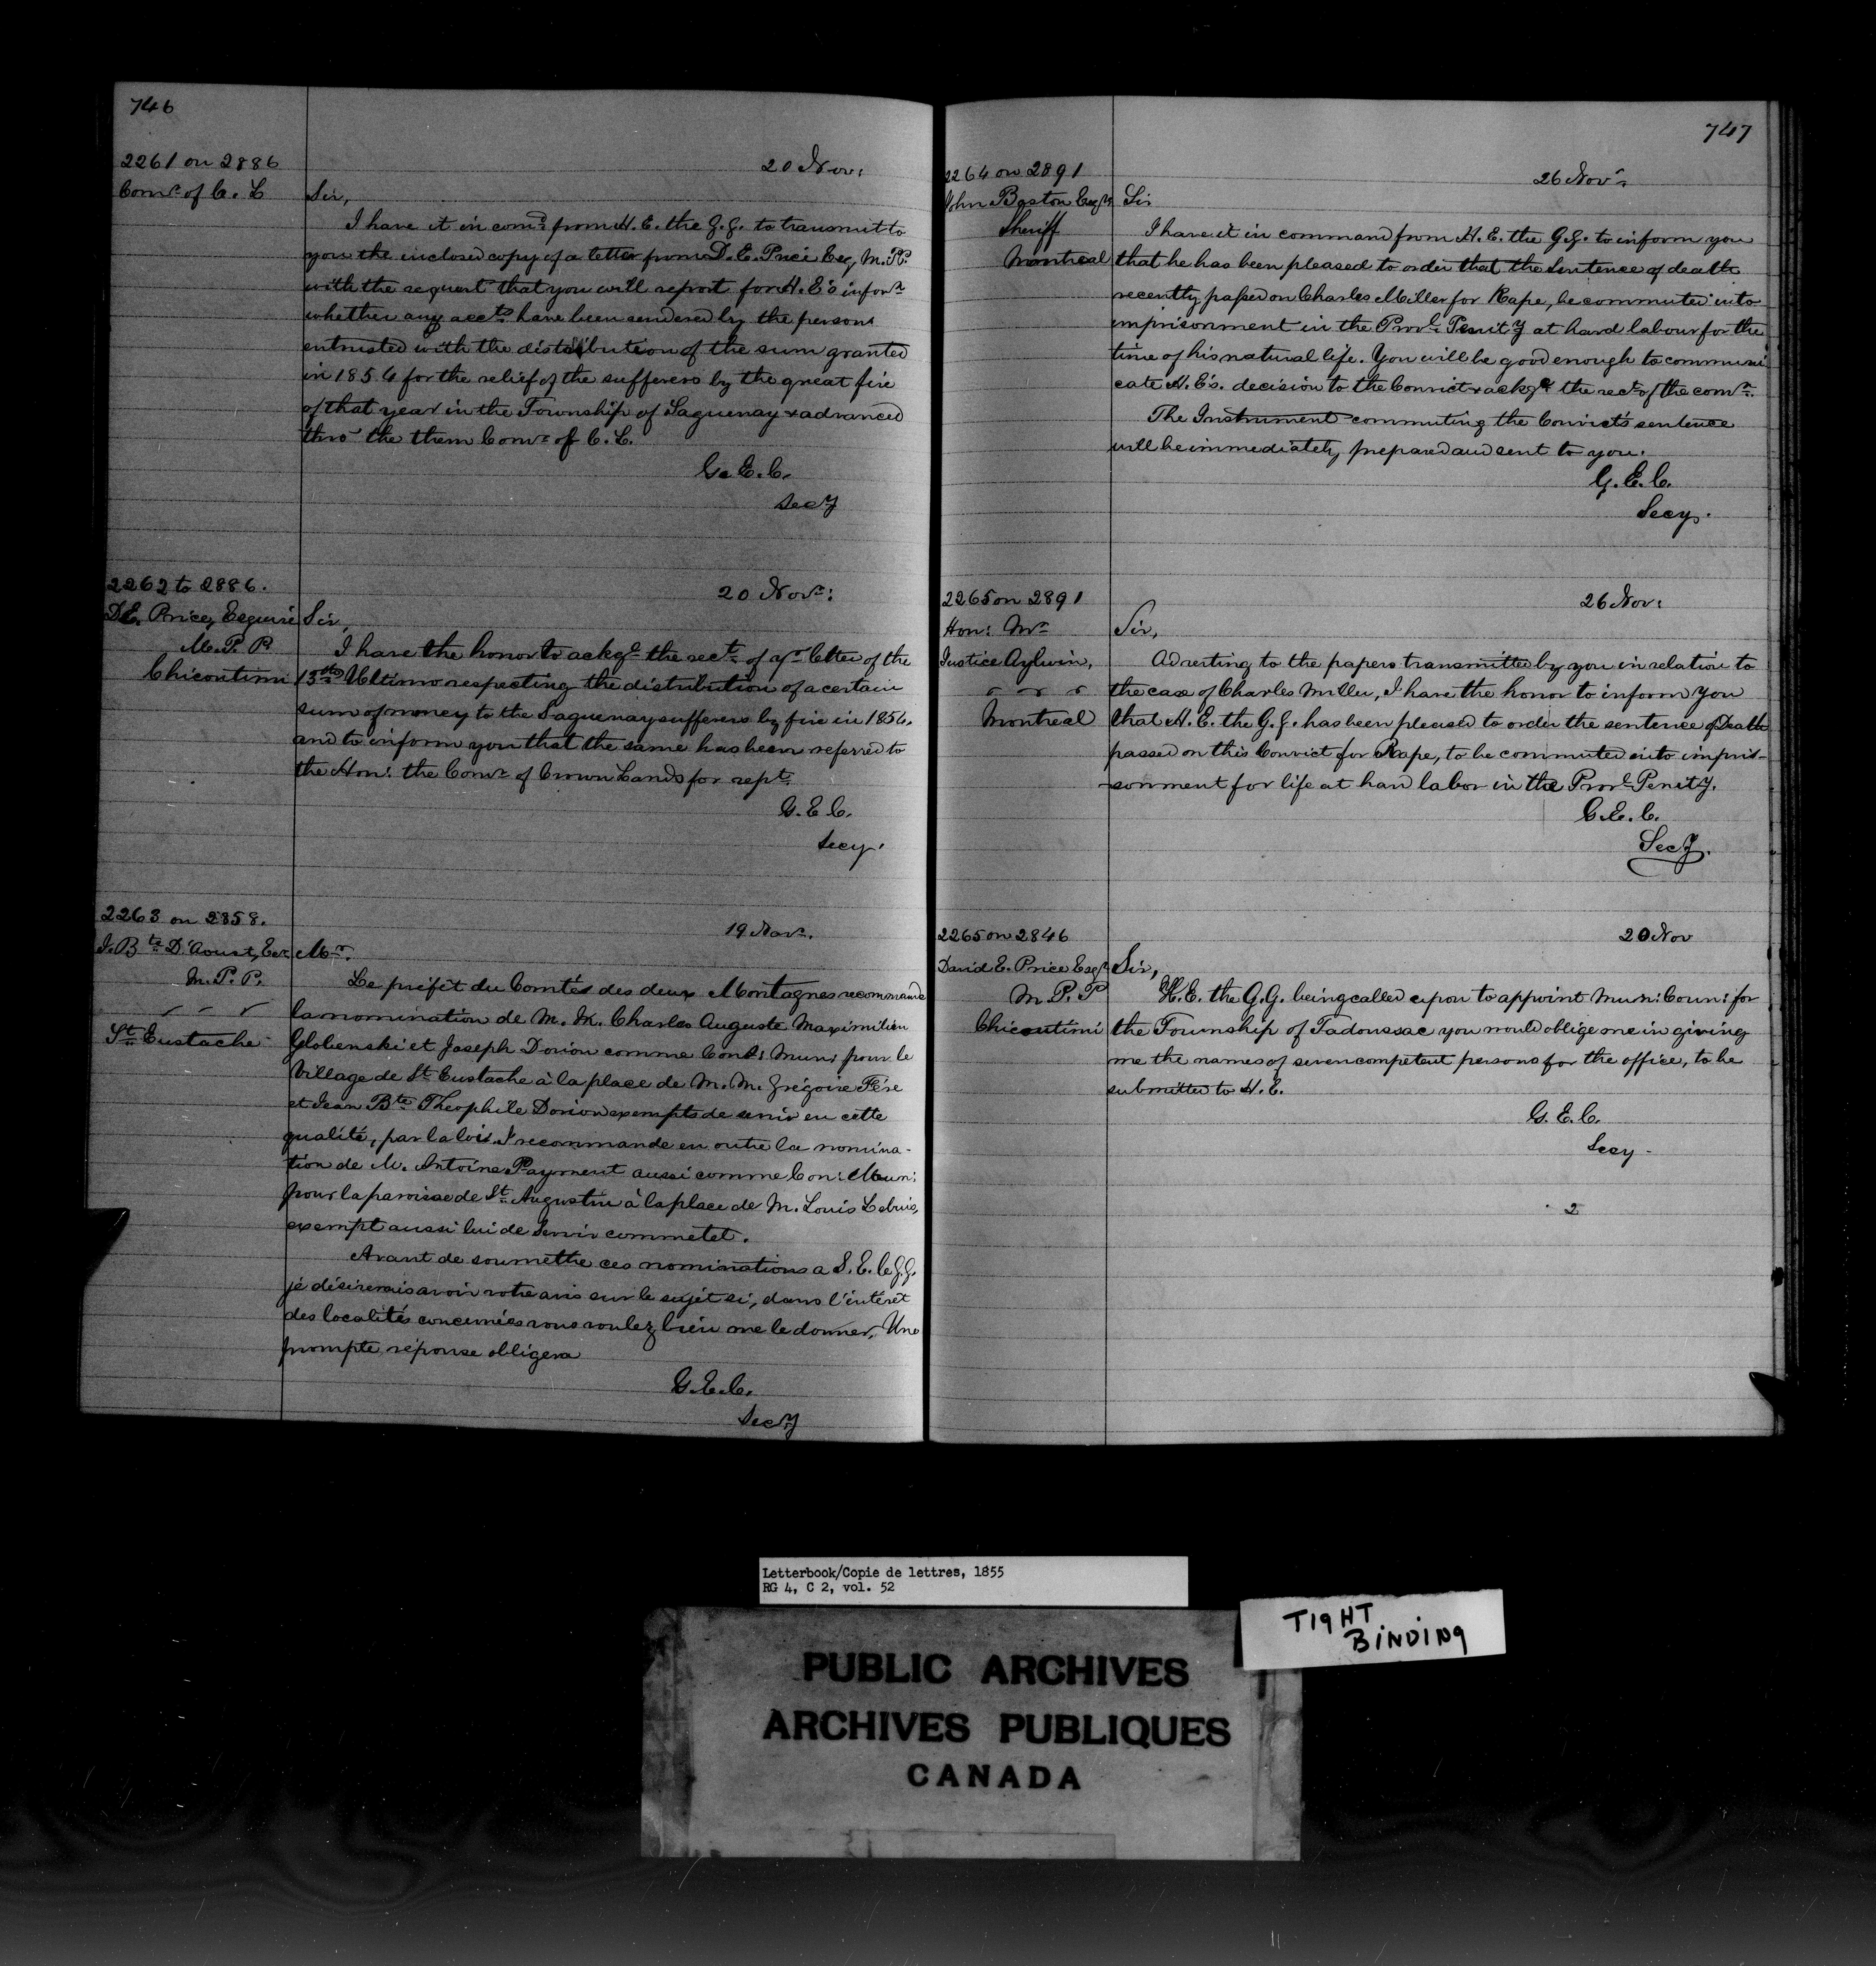 746
2261 on 2886
Comr. of C. L
20 Nov:
Sir,
I have it in comd. from H. E. the G. G. to transmit to
you the inclosed copy of a letter from D. E. Price Esq, M. P.P.
with the request that you will report for H. E's inforn.
whether any accts. have been rendered by the persons
entrusted with the distribution of the sum granted
in 1854 for the relief of the sufferers by the great fire
of that year in the Township of Saguenay & advanced
thro' the them Comr. of C. L.
G. E. C.
Secy
2262 to 2886.
D.E. Price, Esquire
M. P. P.
Chicoutimi
20 Novr:
Sir,
I have the honor to ackge. the rect. of yr. letter of the
13th. Ultimo respecting the distribution of a certain
sum of money to the Saguenay sufferers by fire in 1854.
and to inform you that the same has been referred to
the Hon: the Comr. of Crown Lands for rept.
G. E. C.
Secy.
2263 on 2858.
J. Bte. D'Aoust, Ecr.
M. P. P.
St. Eustache
19 Novr.
Mr.
Le préfèt du Comtés des deux Montagnes recommande
la nomination de M. M. Charles Auguste Maximilien
Globenski et Joseph Dorion comme Cons: Mun: pour le
Village de St. Eustache à la place de M. M. Grégoire Fére
et Jean Bte. Theophile Dorion exempts de servir en cette
qualité, par la loi. I recommande en outre la nomina-
tion de M. Antoine Payment aussi comme Con: Mun:
pour la paroisse de St. Augustin à la place de M. Louis
exempt aussi lui de servir comme tel.
Avant de soumettre ces nominations a S. E. le G. G.
je désirerais avoir votre avis sur le sujét si, dans l'intérét
des localités concernées vous voulez bien me le donner. Une
prompte réponse obligera
G. E. C.
Secy
747
2264 on 2891
John Boston Esqr.
Sheriff
Montreal
26 Novr.
Sir
I have it in command from H. E. the G. G. to inform you
that he has been pleased to order that the Sentence of death
recently passed on Charles Miller for Rape, be commuted into
imprisonment in the Provl. Penity at hard labour for the
time of his natural life. You will be good enough to communi
cate H. E's. decision to the Convict & ackge the rect. of the comn.
The Instrument commuting the Convict's sentence
will be immediately prepared and sent to you.
G. E. C.
Secy.
2265 on 2891
Hon: Mr.
Justice Aylwin,
Montreal
26 Nov:
Sir,
Adverting to the papers transmitted by you in relation to
the case of Charles Miller, I have the honor to inform you
that H. E. the G. G. has been pleased to order the sentence of Death
passed on this Convict for Rape, to be commuted into impri-
-sonment for life at hard labor in the Provl. Penity.
G. E. C.
Secy.
2265 on 2846
David E. Price Esqr.
M. P. P
Chicoutimi
20 Nov
Sir,
H. E. the G. G. being called upon to appoint Mun: Coun: for
the Township of Tadoussac you would oblige me in giving
me the names of seven competent persons for the office, to be
submitted to H. E.
G. E. C.
Secy.
2
Letterbook/Copie de lettres, 1855
RG 4, C 2, vol. 52
TIGHT
BINDING
PUBLIC ARCHIVES
ARCHIVES PUBLIQUES
CANADA